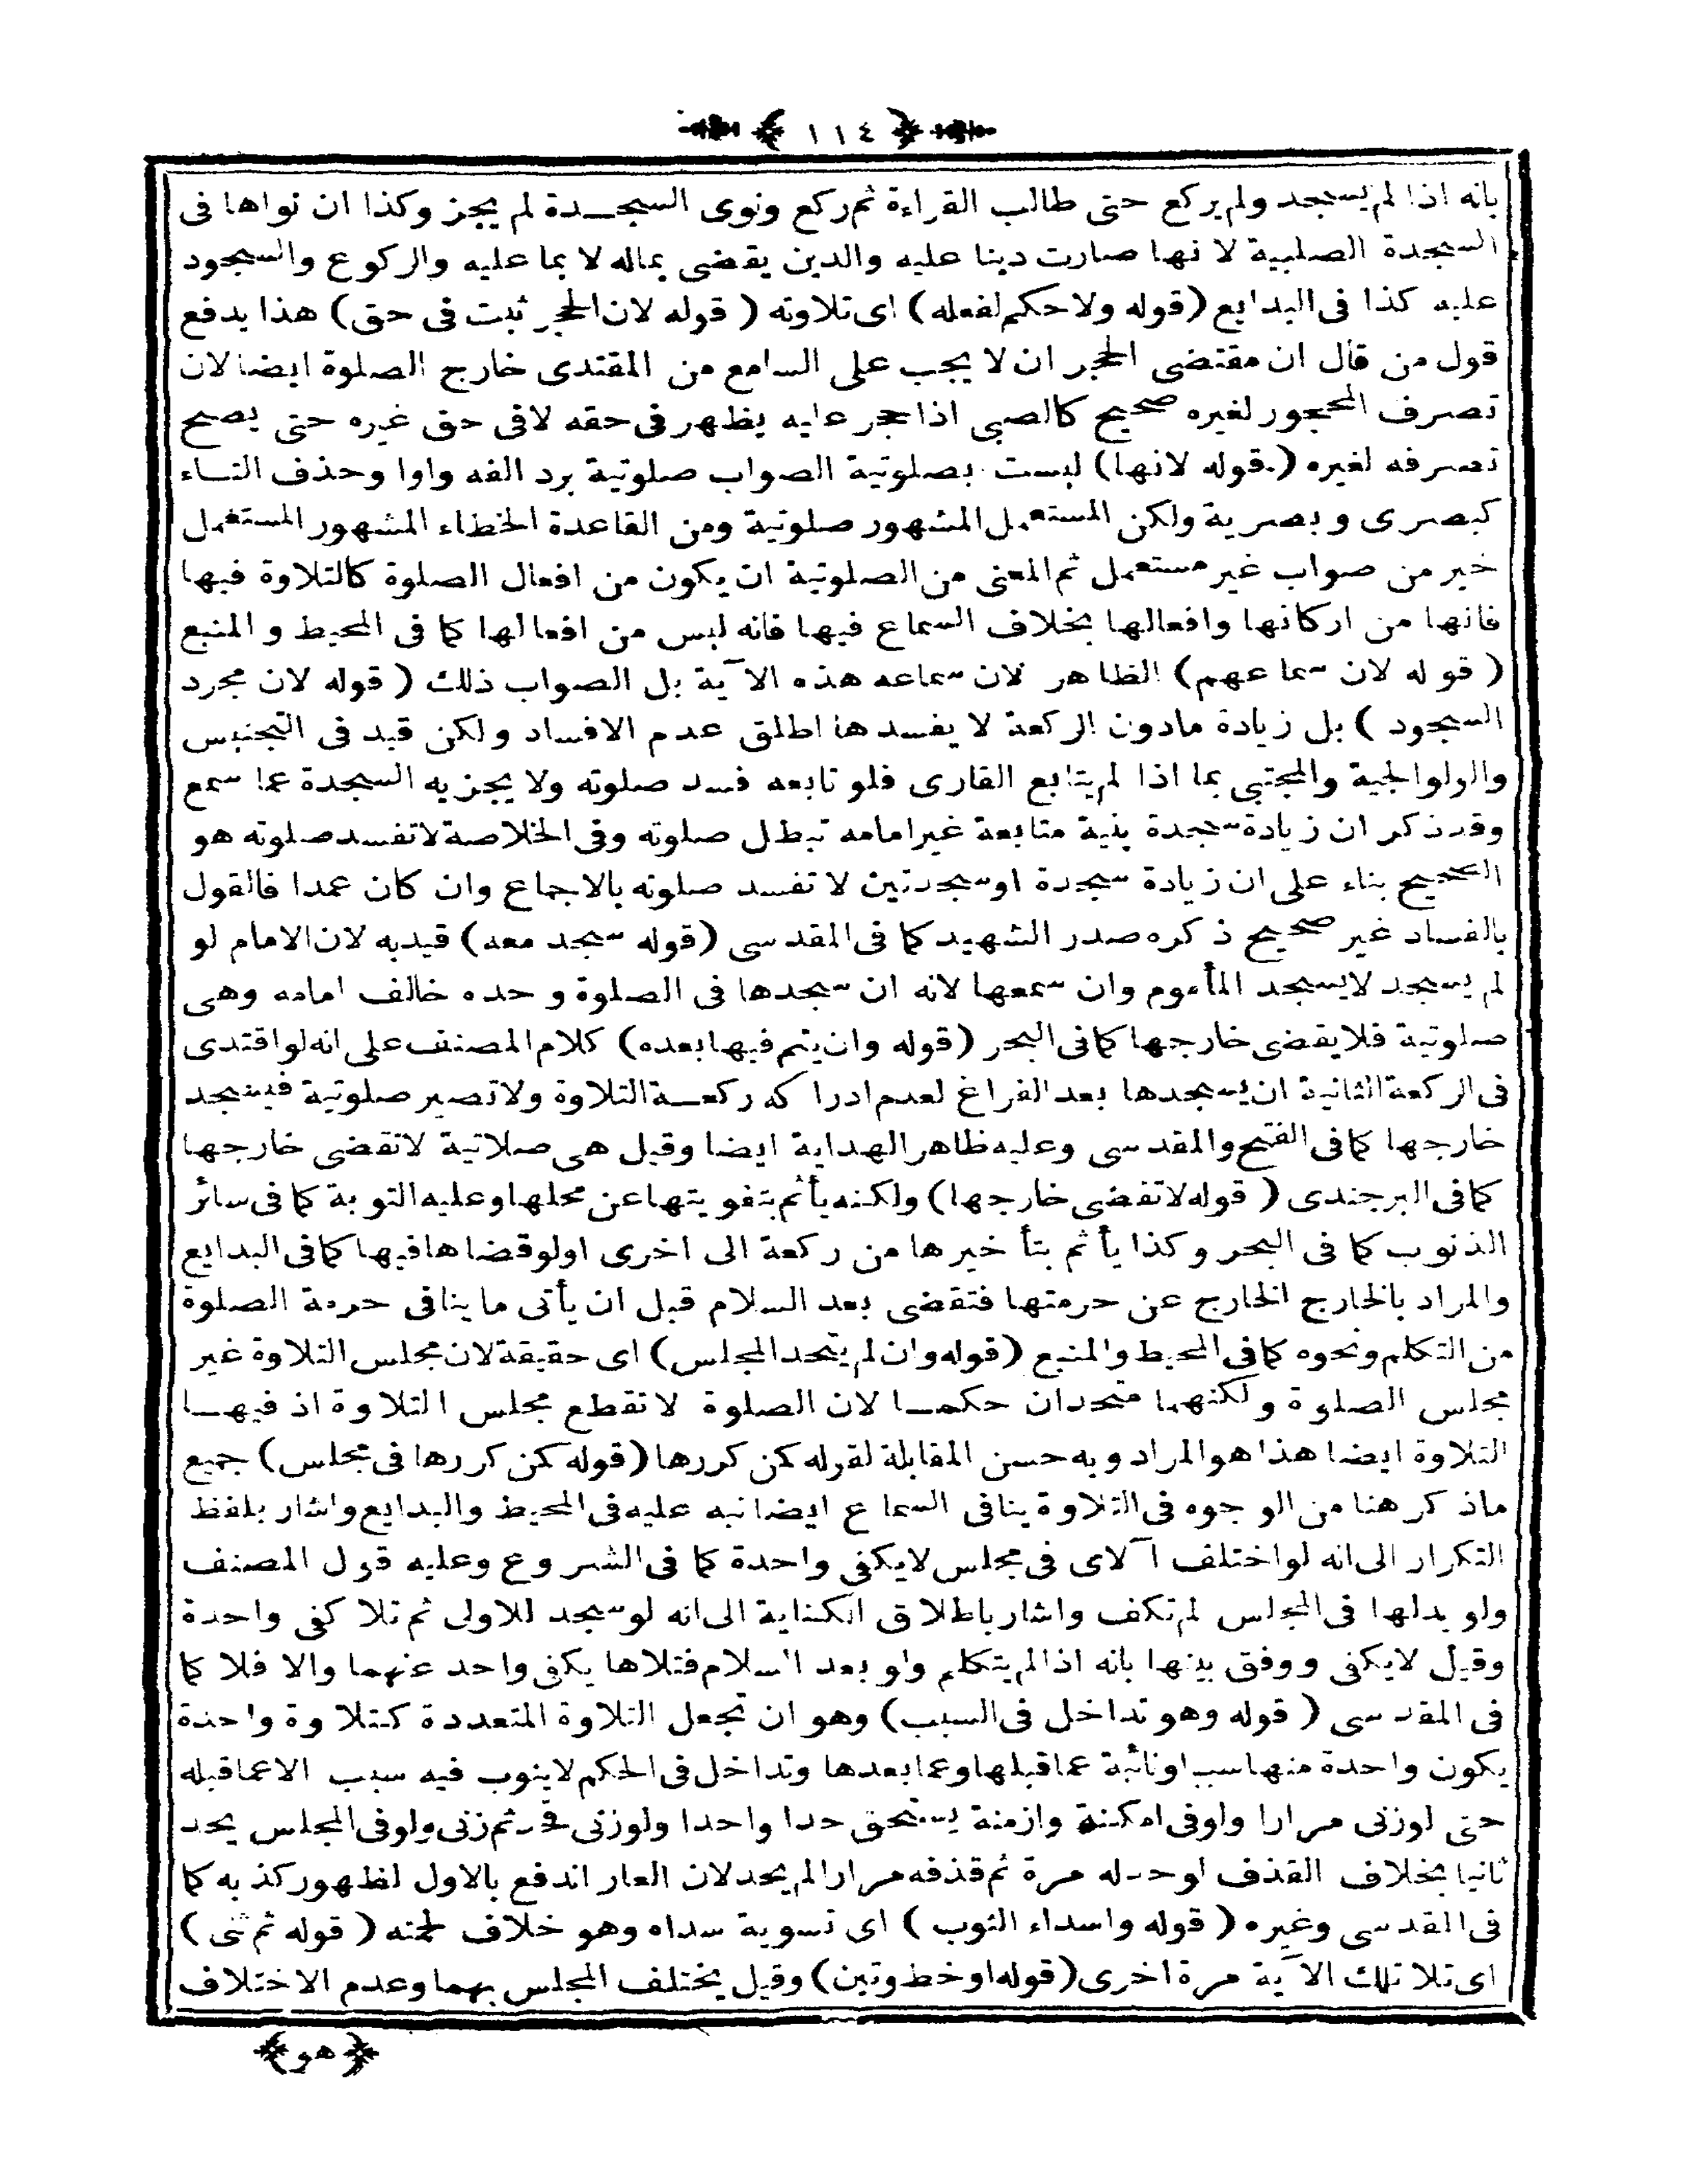 ١١٤
بانه اذا لم يسجد ولم يركع حتى طالب القراءة ثم ركع ونوى السجدة لم يجز وكذا ان نواها فى
السجدة الصلبية لانها صارت دينا عليه والدين يقضى بماله لا بما عليه والركوع والسجود
عليه كذا فى البدايع (قوله ولا حكم لفعله) اى تلاوته (قوله لان الحجر ثبت فى حق) هذا يدفع
قول من قال ان مقتضى الحجر ان لا يجب على السامع من المقتدى خارج الصلوة ايضا لان
تصرف المحجور لغيره صحيح كالصبى اذا حجر عليه يظهر فى حقه لا فى حق غيره حتى يصح
تصرفه لغيره (قوله لانها) ليست بصلوتية الصواب صلوتية برد الفه واوا وحذف التاء
كبصرى وبصرية ولكن المستعمل المشهور صلوتية ومن القاعدة الخطاء المشهور المستعمل
خير من صواب غير مستعمل ثم المعنى من الصلوتية ان يكون من افعال الصلوة كالتلاوة فيها
فانها من اركانها وافعالها بخلاف السماع فيها فانه ليس من افعالها كما فى المحيط والمنبع
(قوله لان سماعهم) الظاهر لان سماعه هذه الآية بل الصواب ذلك (قوله لان مجرد
السجود) بل زيادة مادون الركعة لا يفسدها اطلق عدم الافساد ولكن قيد فى التجنيس
والولوالجية والمجتبى بما اذا لم يتابع القارى فلو تابعه فسد صلوته ولا يجزيه السجدة عما سمع
وقد ذكر ان زيادة سجدة بنية متابعة غير امامه تبطل صلوته وفى الخلاصة لا تفسد صلوته هو
الصحيح بناء على ان زيادة سجدة او سجدتين لا تفسد صلوته بالاجماع وان كان عمدا فالقول
بالفساد غير صحيح ذكره صدر الشهيد كما فى المقدسى (قوله سجد معه) قيد به لان الامام لو
لم يسجد لا يسجد المأموم وان سمعها لانه ان سجدها فى الصلوة وحده خالف امامه وهى
صلوتية فلا يقضى خارجها كما فى البحر (قوله وان يتم فيها بعده) كلام المصنف على انه لو اقتدى
فى الركعة الثانية ان يسجدها بعد الفراغ لعدم ادراكه ركعة التلاوة ولا تصير صلوتية فيسجد
خارجها كما فى الفتح والمقدسى وعليه ظاهر الهداية ايضا وقيل هى صلاتية لا تقضى خارجها
كما فى البرجندى (قوله لا تقضى خارجها) ولكنه يأثم بتفويتها عن محلها وعليه التوبة كما فى سائر
الذنوب كما فى البحر وكذا يأثم بتأخيرها من ركعة الى اخرى اولو قضاها فيها كما فى البدايع
والمراد بالخارج الخارج عن حرمتها فتقضى بعد السلام قبل ان يأتى ما ينافى حرمة الصلوة
من التكلم ونحوه كما فى المحيط والمنبع (قوله وان لم يتحد المجلس) اى حقيقة لان مجلس التلاوة غير
مجلس الصلوة ولكنهما متحدان حكما لان الصلوة لا تقطع مجلس التلاوة اذ فيها
التلاوة ايضا هذا هو المراد وبه حسن المقابلة لقوله كمن كررها (قوله كمن كررها فى مجلس) جميع
ماذكر هنا من الوجوه فى التلاوة ينافى السماع ايضا نبه عليه فى المحيط والبدايع واشار بلفظ
التكرار الى انه لو اختلف الآى فى مجلس لا يكفى واحدة كما فى الشروع وعليه قول المصنف
ولو بدلها فى المجلس لم تكف واشار باطلاق الكناية الى انه لو سجد للاولى ثم تلا كفى واحدة
وقيل لا يكفى ووفق بينها بانه اذا لم يتكلم ولو بعد السلام فتلاها يكفى واحد عنهما والا فلا كما
فى المقدسى (قوله وهو تداخل فى السبب) وهو ان تجعل التلاوة المتعددة كتلاوة واحدة
يكون واحدة منها سببا ونائبة عما قبلها وعما بعدها وتداخل فى الحكم لا ينوب فيه سبب الا عما قبله
حتى لو زنى مرارا ولو فى امكنة وازمنة يستحق حدا واحدا ولو زنى فحد ثم زنى ولو فى المجلس يحد
ثانيا بخلاف القذف لو حد له مرة ثم قذفه مرارا لم يحد لان العار اندفع بالاول لظهور كذبه كما
فى القدسى وغيره (قوله واسداء الثوب) اى تسوية سداه وهو خلاف لحمته (قوله ثم ثنى)
اى تلا تلك الآية مرة اخرى (قوله او خطوتين) وقيل يختلف المجلس بهما وعدم الاختلاف
هو